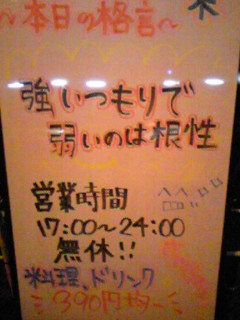 木
~本日の格言~
強いつもりで
弱いのは根性
営業時間
17:00~24:00
無休!!
料理、ドリンク
390円均一